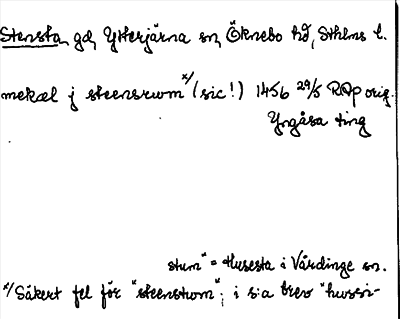 Stensta, gd, Ytterjärna sn, Öknebo hd, Sthlms l.
mekæl j steensrwm x/ (sic!) 1456 29/5 RAp orig.
Yngåsa ting
stum" = Husesta i Vårdinge sn.
x/ Säkert fel för "steenstum"; i s.a brev "hwssi-